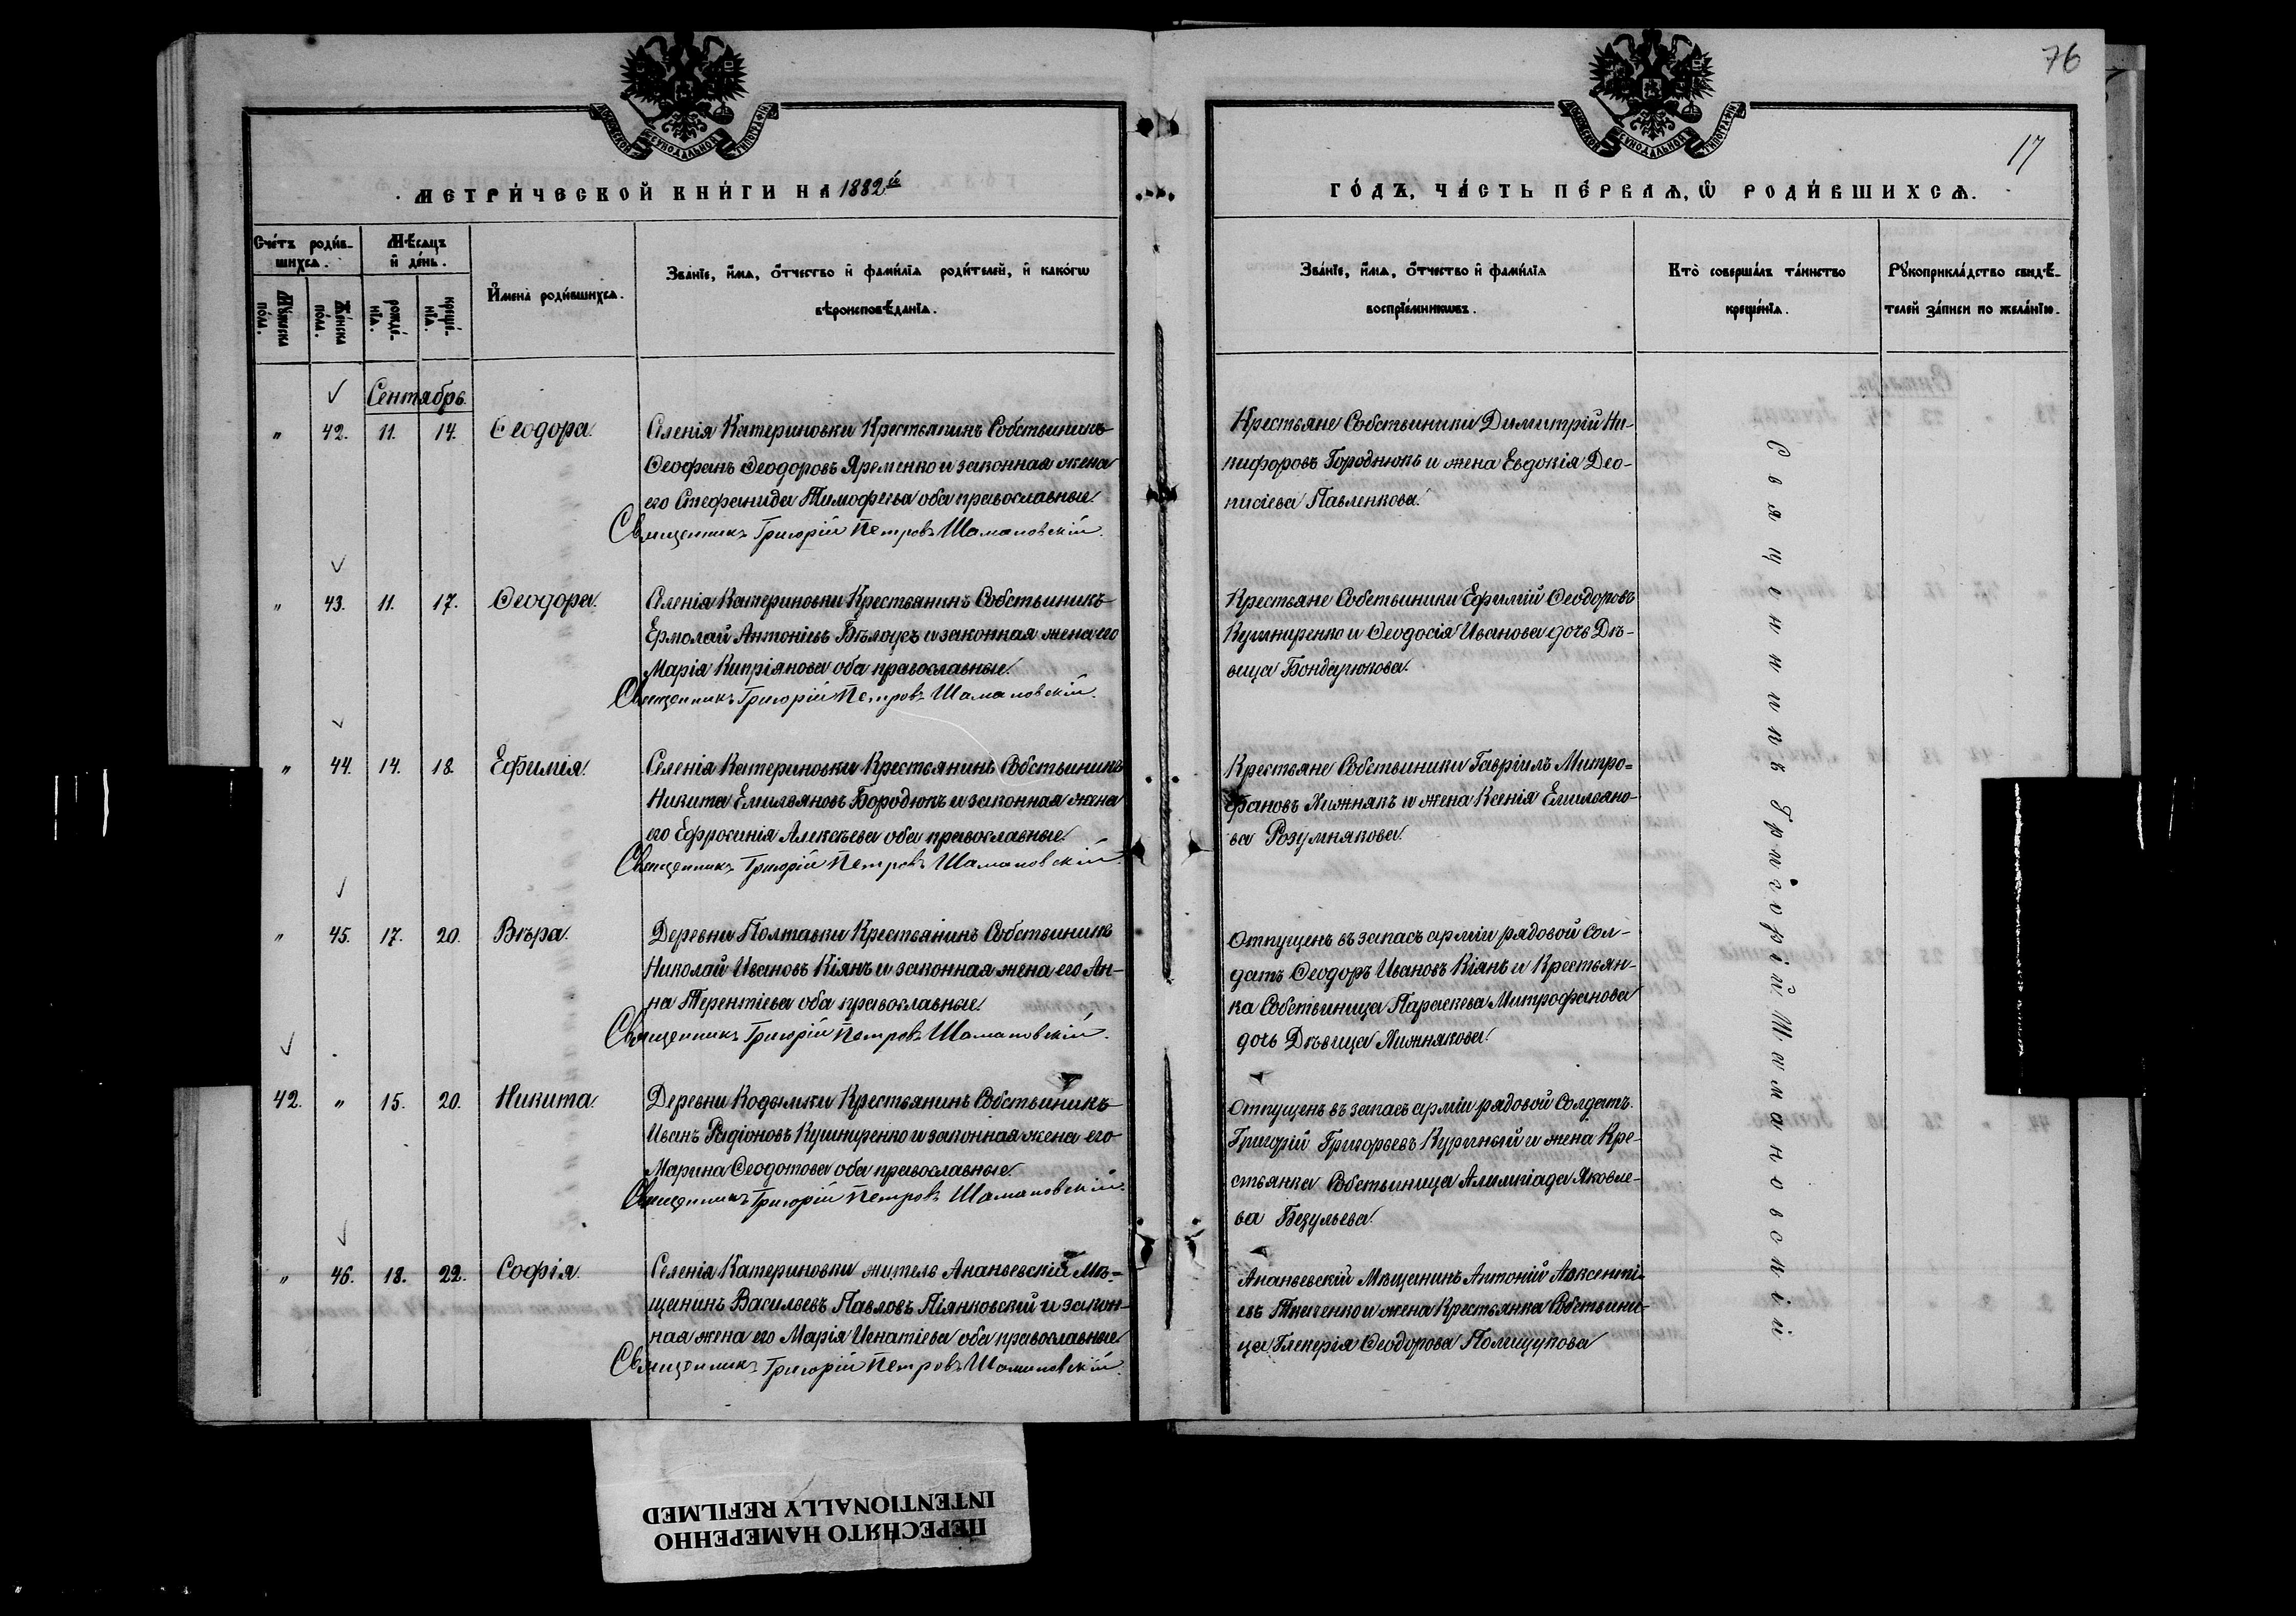 76
17
МОСКОВСКОЙ СѴНОДАЛЬНОЙ ТИПОГРАФІИ
МОСКОВСКОЙ СѴНОДАЛЬНОЙ ТИПОГРАФІИ
МЕТРИ́ЧЕСКОЙ КНИ́ГИ НА 1882й
ГО́ДЪ, ЧА́СТЬ ПЕ́РВАѦ, Ѡ РОДИ́ВШИХСѦ.
Сче́тъ роди́в-
шихсѧ.
Мѣ́сѧцъ
и҆ де́нь.
Мꙋ́жеска
по́ла.
Же́нска
по́ла.
рожде́-
нїѧ.
креще́-
нїѧ.
И҆мена̀ роди́вшихсѧ.
Зва́нїе, и҆́мѧ, ѻ҆́тчество и҆ фами́лїѧ роди́телей, и҆ како́гѡ
вѣроисповѣ́данїѧ.
Зва́нїе, и҆́мѧ, ѻ҆́тчество и҆ фами́лїѧ
воспрїе́мникѡвъ.
Кто̀ соверша́лъ та́инство
креще́нїѧ.
Рꙋкоприкла́дство свидѣ́-
телей за́писи по жела́нїю.
Сентябрь.
" 42. 11. 14. Ѳеодора.
Селенія Катериновки Крестьянинъ Собственникъ
Ѳеофанъ Ѳеодоровъ Яременко и законная жена
его Стефанида Тимофеева оба православные.
Священникъ Григорій Петровъ Шамановскій.
Крестьяне Собственники Димитрій Ни-
кифоровъ Городнюкъ и жена Евдокія Део-
нисіева Павленкова.
" 43. 11. 17. Ѳеодора.
Селенія Катериновки Крестьянинъ Собственникъ
Ермолай Антоніевъ Бѣлоусъ и законная жена его
Марія Кипріянова оба православные.
Священникъ Григорій Петровъ Шамановскій.
Крестьяне Собственники Ефимій Ѳеодоровъ
Кушниренко и Ѳеодосія Иванова дочь Дѣ-
вица Бондарюкова.
" 44. 14. 18. Ефимія.
Селенія Катериновки Крестьянинъ Собственникъ
Никита Емильяновъ Бородюкъ и законная жена
его Ефросинія Алексѣева оба православные.
Священникъ Григорій Петровъ Шамановскій.
Крестьяне Собственники Гавріилъ Митро=
фановъ Хижнякъ и жена Ксенія Емильяно-
ва Розумнякова.
" 45. 17. 20. Вѣра.
Деревни Полтавки Крестьянинъ Собственникъ
Николай Ивановъ Кіянъ и законная жена его Ан-
на Терентіева оба православные.
Священникъ Григорій Петровъ Шамановскій.
Отпущенъ въ запасъ арміи рядовой Сол-
датъ Ѳеодоръ Ивановъ Кіянъ и Крестьян-
ка Собственница Параскева Митрофанова
дочь Дѣвица Хижнякова.
42. " 15. 20. Никита.
Деревни Кодымки Крестьянинъ Собственникъ
Иванъ Радіоновъ Кушниренко и законная жена его
Марина Ѳеодотова оба православные.
Священникъ Григорій Петровъ Шамановскій.
Отпущенъ въ запасъ арміи рядовой Солдатъ
Григорій Григорьевъ Куриный и жена Кре-
стьянка Собственница Алимпіада Яковле-
ва Безульева.
" 46. 18. 22. Софія.
Селенія Катериновки житель Ананьевскій Мѣ=
щанинъ Васильевъ Павловъ Піянковскій и закон-
ная жена его Марія Игнатіева оба православные
Священникъ Григорій Петровъ Шамановскій.
Ананьевскій Мѣщанинъ Антоній Авксенті-
евъ Ткаченко и жена Крестьянка Собственни-
ца Гликерія Ѳеодорова Полищукова
Священникъ Григорій Шамановскій
ПЕРЕСНЯТО НАМЕРЕННО
INTENTIONALLY REFILMED